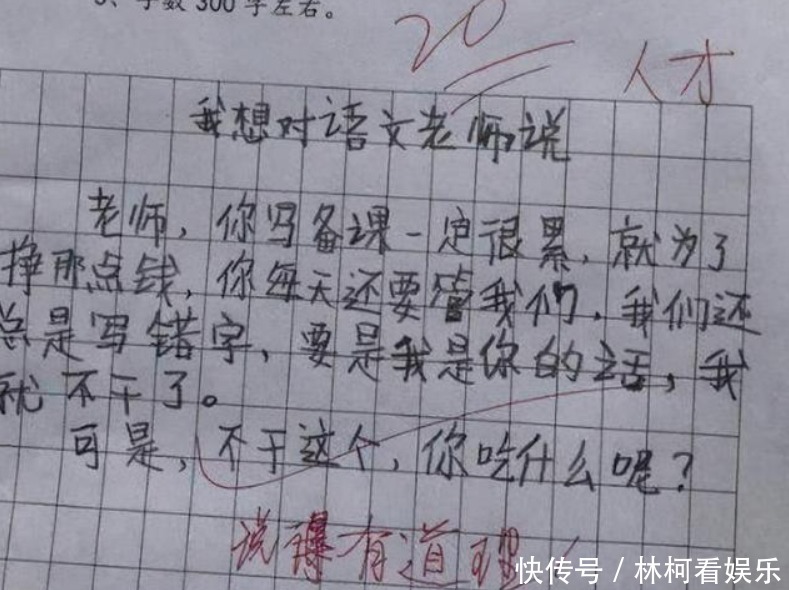 3、字数300字左右。
20
人才
我想对语文老师说
老师，你写备课一定很累，就为了
挣那点钱，你每天还要管我们，我们还
总是写错字，要是我是你的话，我
就不干了。
可是，不干这个，你吃什么呢？
说得有道理！
快传号／林柯看娱乐